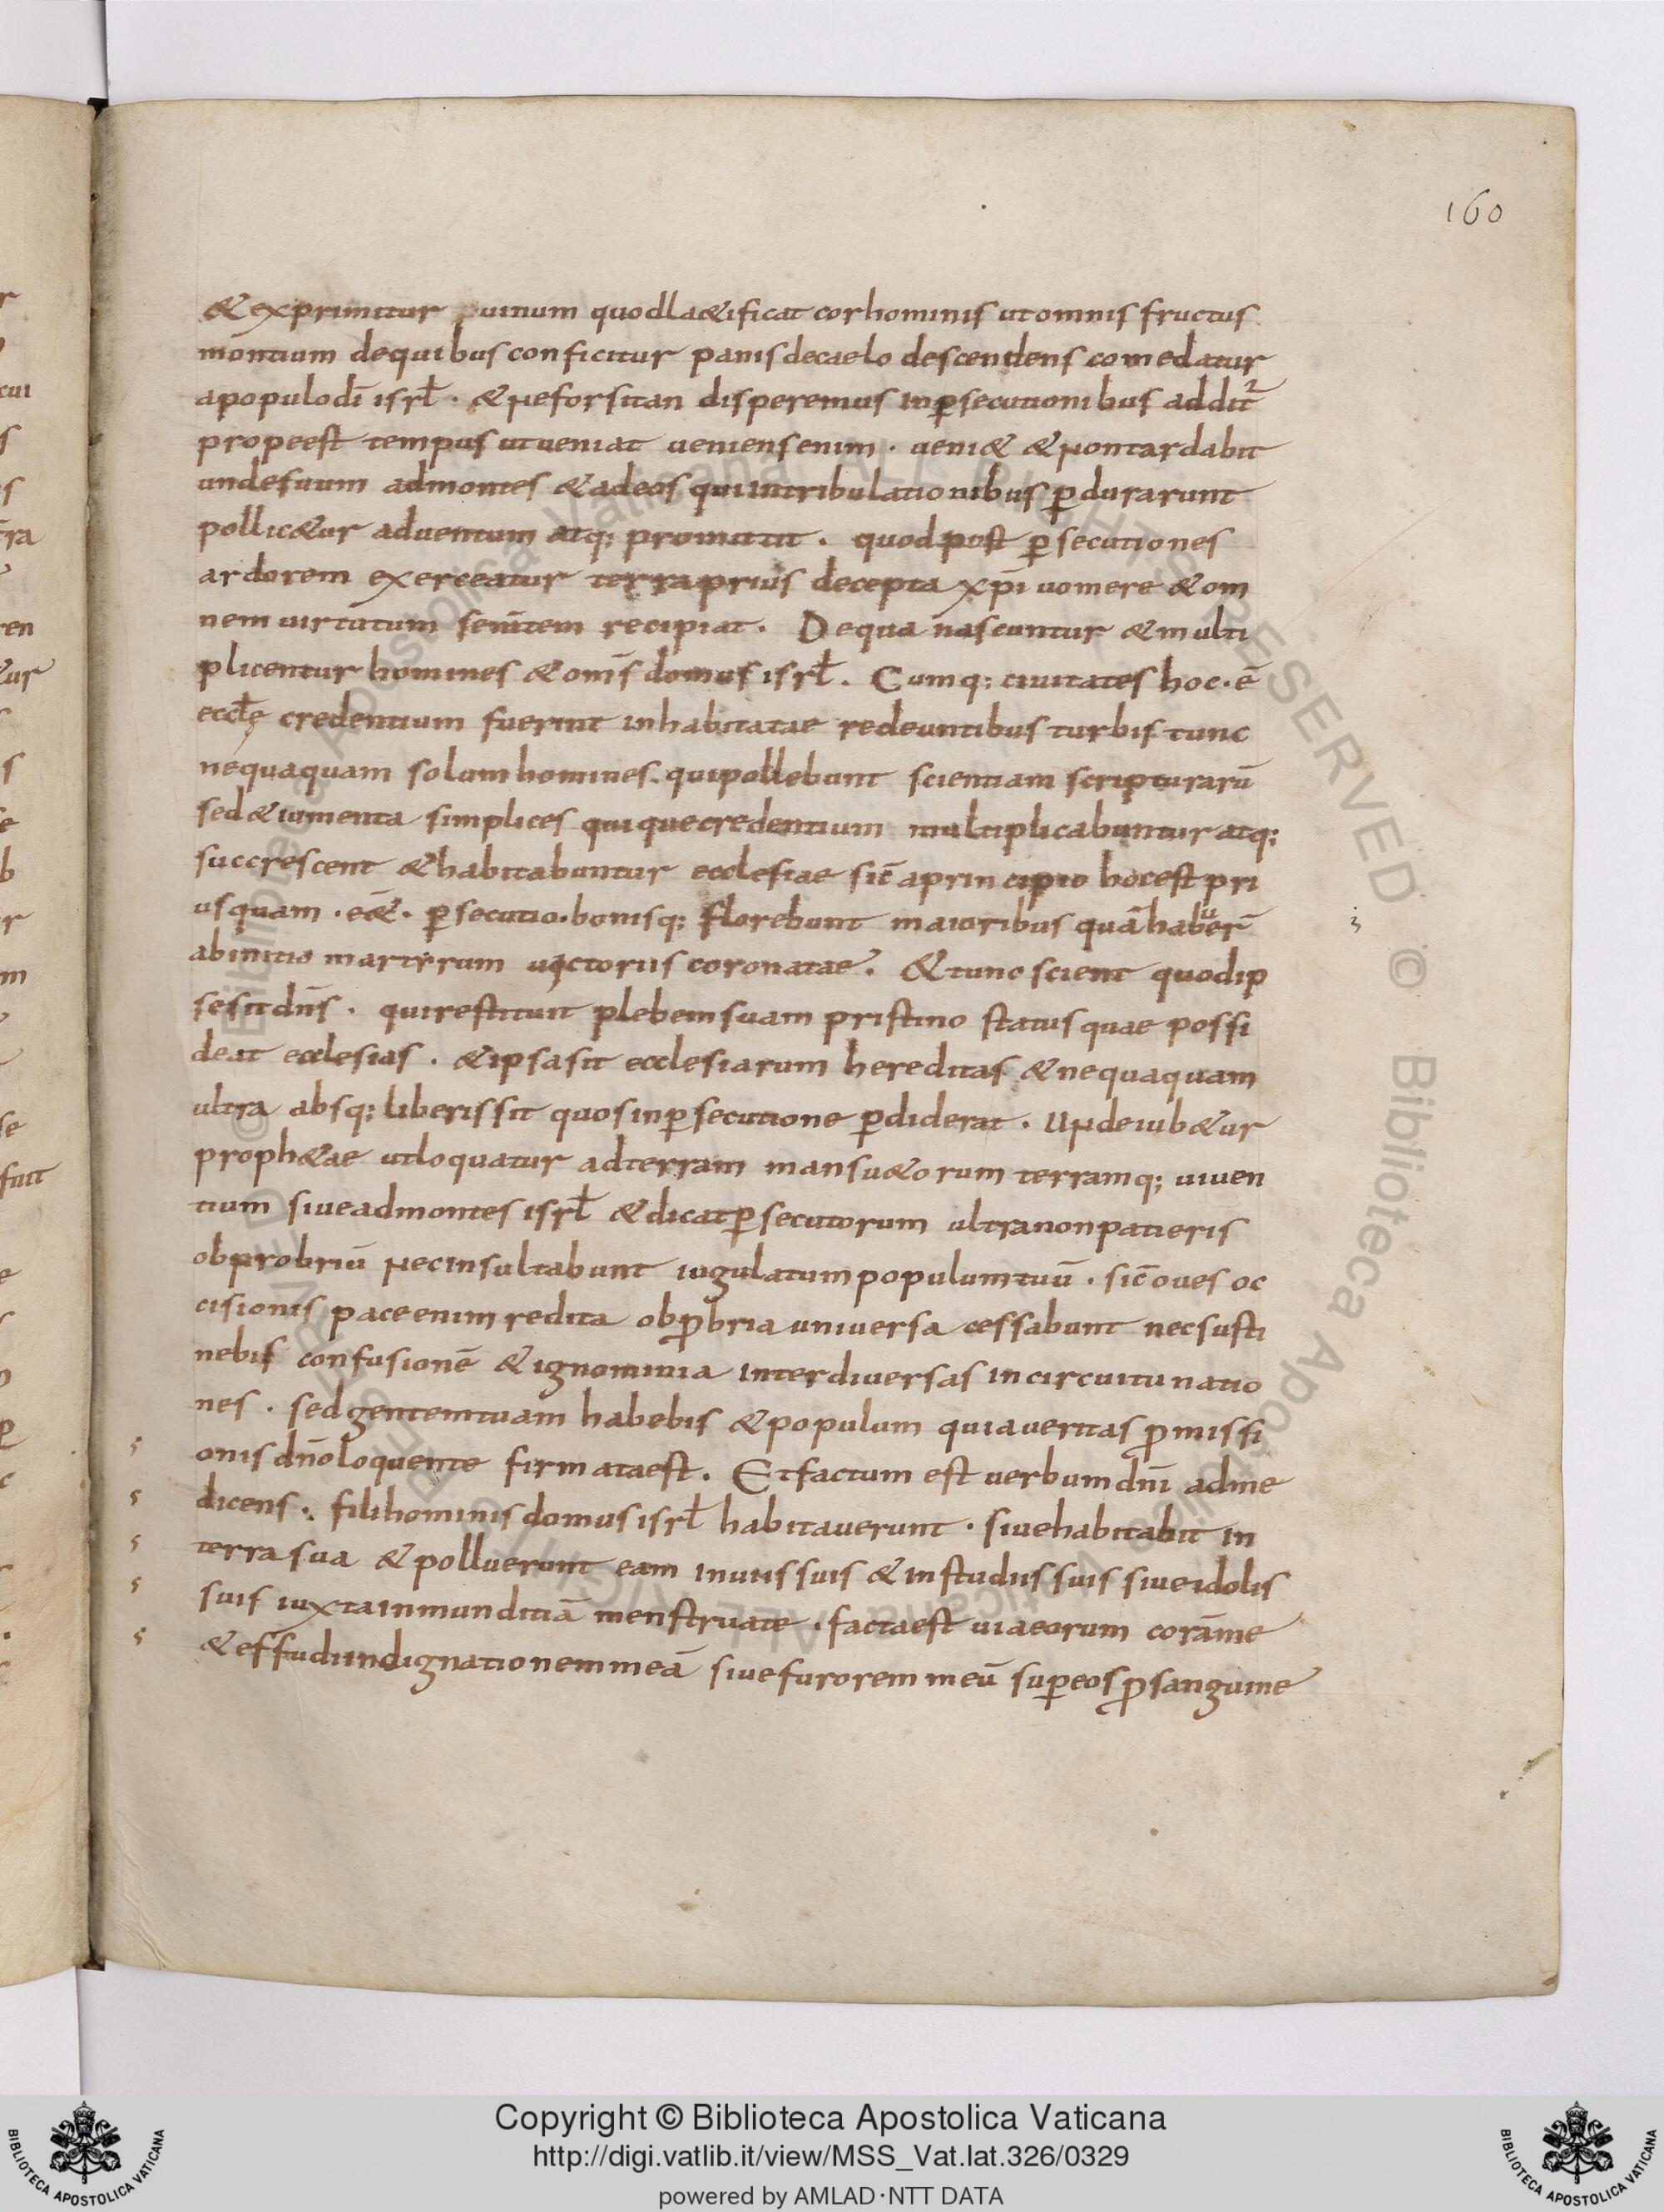 160
& exprimitur uinum quodla&ificat corhominis utomnis fructus
montium dequibus conficitur panis decaelo descendens comedatur
apopulodī isrł · & neforsitan disperemus inꝑsecutionibus addit᷑
propeest tempus utueniat ueniensenim · ueni& & nontardabit
undesuum admontes & adeos quiintribulationibus ꝑdurarunt
pollic&ur aduentum atq; promittit · quodpost ꝑsecutiones
ardorem exerceatur terraprius decepta xp̄i uomere & om
nem uirtutum sem̄tem recipiat · Dequa nascuntur & multi
plicentur homines & om̄s domus isrł · Cumq; ciuitates hoc · ē
eccłę credentium fuerint inhabitatae redeuntibus turbis tunc
nequaquam solum homines · quipollebunt scientiam scripturarū
sed & iumenta simplices quiquecredentium multiplicabuntur atq;
succrescent & habitabuntur ecclesiae sic̄ aprincipio hocest pri
usquam · e&̄ · ꝑsecutio · bonisq; florebunt maioribus quā habuer̄
abinitio martyrum uictoriis coronatae · & tunc scient quodip
sesitdn̄s · quirestituit plebemsuam pristino status quae possi
deat ecclesias · & ipsasit ecclesiarum hereditas & nequaquam
ultra absq; liberis sit quosinꝑsecutione ꝑdiderat · undeiub&ur
proph&ae utloquatur adterram mansu&orum terramq; uiuen
tium siueadmontes isrł & dicatꝑsecutorum ultranonpatieris
obprobriū necinsultabunt iugulatum populumtuū · sic̄ oues oc
cisionis paceenim redita obꝓbria uniuersa cessabunt necsusti
nebis confusionē & ignominia interdiuersas incircuitu natio
nes · sedgentemtuam habebis & populum quiaueritas ꝓmissi
onis dn̄oloquente firmataest · Etfactum est uerbumdn̄i adme
dicens · filihominis domusisrł habitauerunt · siuehabitabit in
terra sua & polluerunt eam inuiis suis & instudiis suis siueidolis
suis iuxtainmunditiā menstruate · factaest uiaeorum corāme
& effudiindignationemmeā siuefuroremmeū suꝑeosꝓsanguine
Copyright © Biblioteca Apostolica Vaticana
http://digi.vatlib.it/view/MSS_Vat.lat.326/0329
powered by AMLAD·NTT DATA